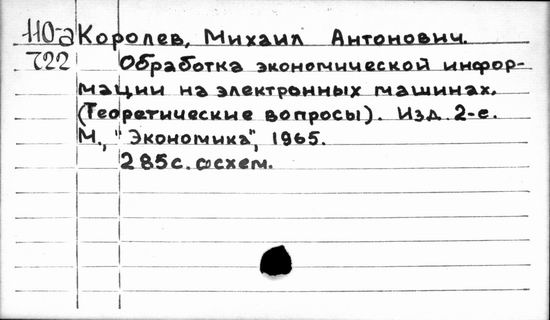 110-а Королев, Михаил Антонович.
722 Обработка экономической инфор-
мации на электронных машинах.
(Теоретические вопросы). Изд. 2-е.
М., "Экономика", 1965.
285 с. со схем.